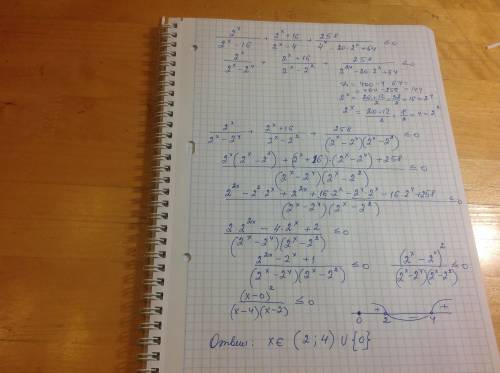 2^x/(2^x-16) + (2^x+16)/(2^x-4) + 258/(4^x-20·2^x+64) ≤ 0
2^x/(2^x-2^4) + (2^x+16)/(2^x-2^2) + 258/(2^{2x}-20·2^x+64) ≤ 0
= 400-4·64=
= 400-256 = 144
2^x = (20+12)/2 = 32/2 = 16 = 2^4
2^x = (20-12)/2 = 8/2 = 4 = 2^2
2^x/(2^x-2^4) + (2^x+16)/(2^x-2^2) + 258/((2^x-2^4)(2^x-2^2)) ≤ 0
(2^x(2^x-2^2) + (2^x+16)·(2^x-2^4)+258)/((2^x-2^4)(2^x-2^2)) ≤ 0
(2^{2x}-2^2·2^x+2^{2x}+16·2^x-2^4·2^x-16·2^4+258)/((2^x-2^4)(2^x-2^2)) ≤ 0
(2·2^{2x}-4·2^x+2)/((2^x-2^4)(2^x-2^2)) ≤ 0
(2^{2x}-2^x+1)/((2^x-2^4)(2^x-2^2)) ≤ 0 (2^x-2^0)^2/((2^x-2^4)(2^x-2^2)) ≤ 0
(x-0)^2/((x-4)(x-2)) ≤ 0
+ - +
0 2 4
Ответ: x∈ (2;4) ∪ {0}